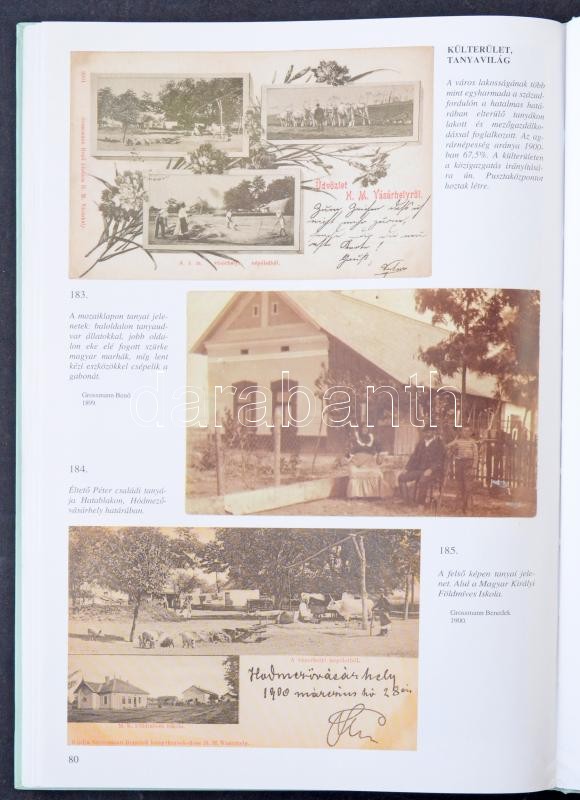 KÜLTERÜLET,
TANYAVILÁG
A város lakosságának több
mint egyharmada a század-
fordulón a hatalmas hatá-
rában elterülő tanyákon
lakott és mezőgazdálko-
dással foglalkozott. Az ag-
rárnépesség aránya 1900-
ban 67,5%. A külterületen
a közigazgatás irányításá-
ra ún. Pusztaközpontot
hoztak létre.
Üdvözlet
H. M. Vásárhelyről.
183.
A mozaiklapon tanyai jele-
netek: baloldalon tanyaud-
var állatokkal, jobb olda-
lon eke elé fogott szürke
magyar marhák, míg lent
kézi eszközökkel csépelik a
gabonát.
Grossmann Benő
1899.
darabanth.com
184.
Éltető Péter családi tanyá-
ja Hatablakon, Hódmező-
vásárhely határában.
185.
A felső képen tanyai jele-
net. Alul a Magyar Királyi
Földmíves Iskola.
Grossmann Benedek
1900.
A vásárhelyi népéletből.
Hodmezővásárhely
1900 március hó 28án
M. K. Földmíves iskola.
80